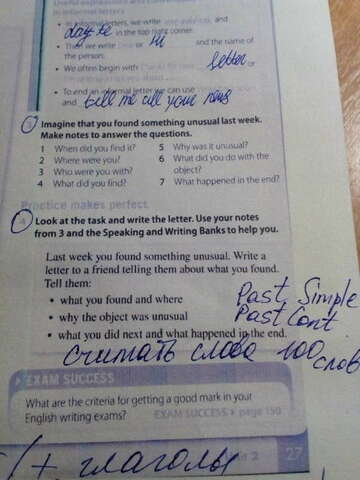 Useful expressions and
in informal letters
• In informal letters, we write your address and
date in the top right corner.
• Then we write Dear or Hi and the name of
the person.
• We often begin with Thanks for letter or
• To end an informal letter we can use
and tell me all your news
3 Imagine that you found something unusual last week.
Make notes to answer the questions.
1 When did you find it?
2 Where were you?
3 Who were you with?
4 What did you find?
5 Why was it unusual?
6 What did you do with the
object?
7 What happened in the end?
Practice makes perfect
4 Look at the task and write the letter. Use your notes
from 3 and the Speaking and Writing Banks to help you.
Last week you found something unusual. Write a
letter to a friend telling them about what you found.
Tell them:
• what you found and where
• why the object was unusual
• what you did next and what happened in the end.
Past Simple
Past Cont
считать слова 100
слов
EXAM SUCCESS
What are the criteria for getting a good mark in your
English writing exams? EXAM SUCCESS page 150
2 27
+ глаголы